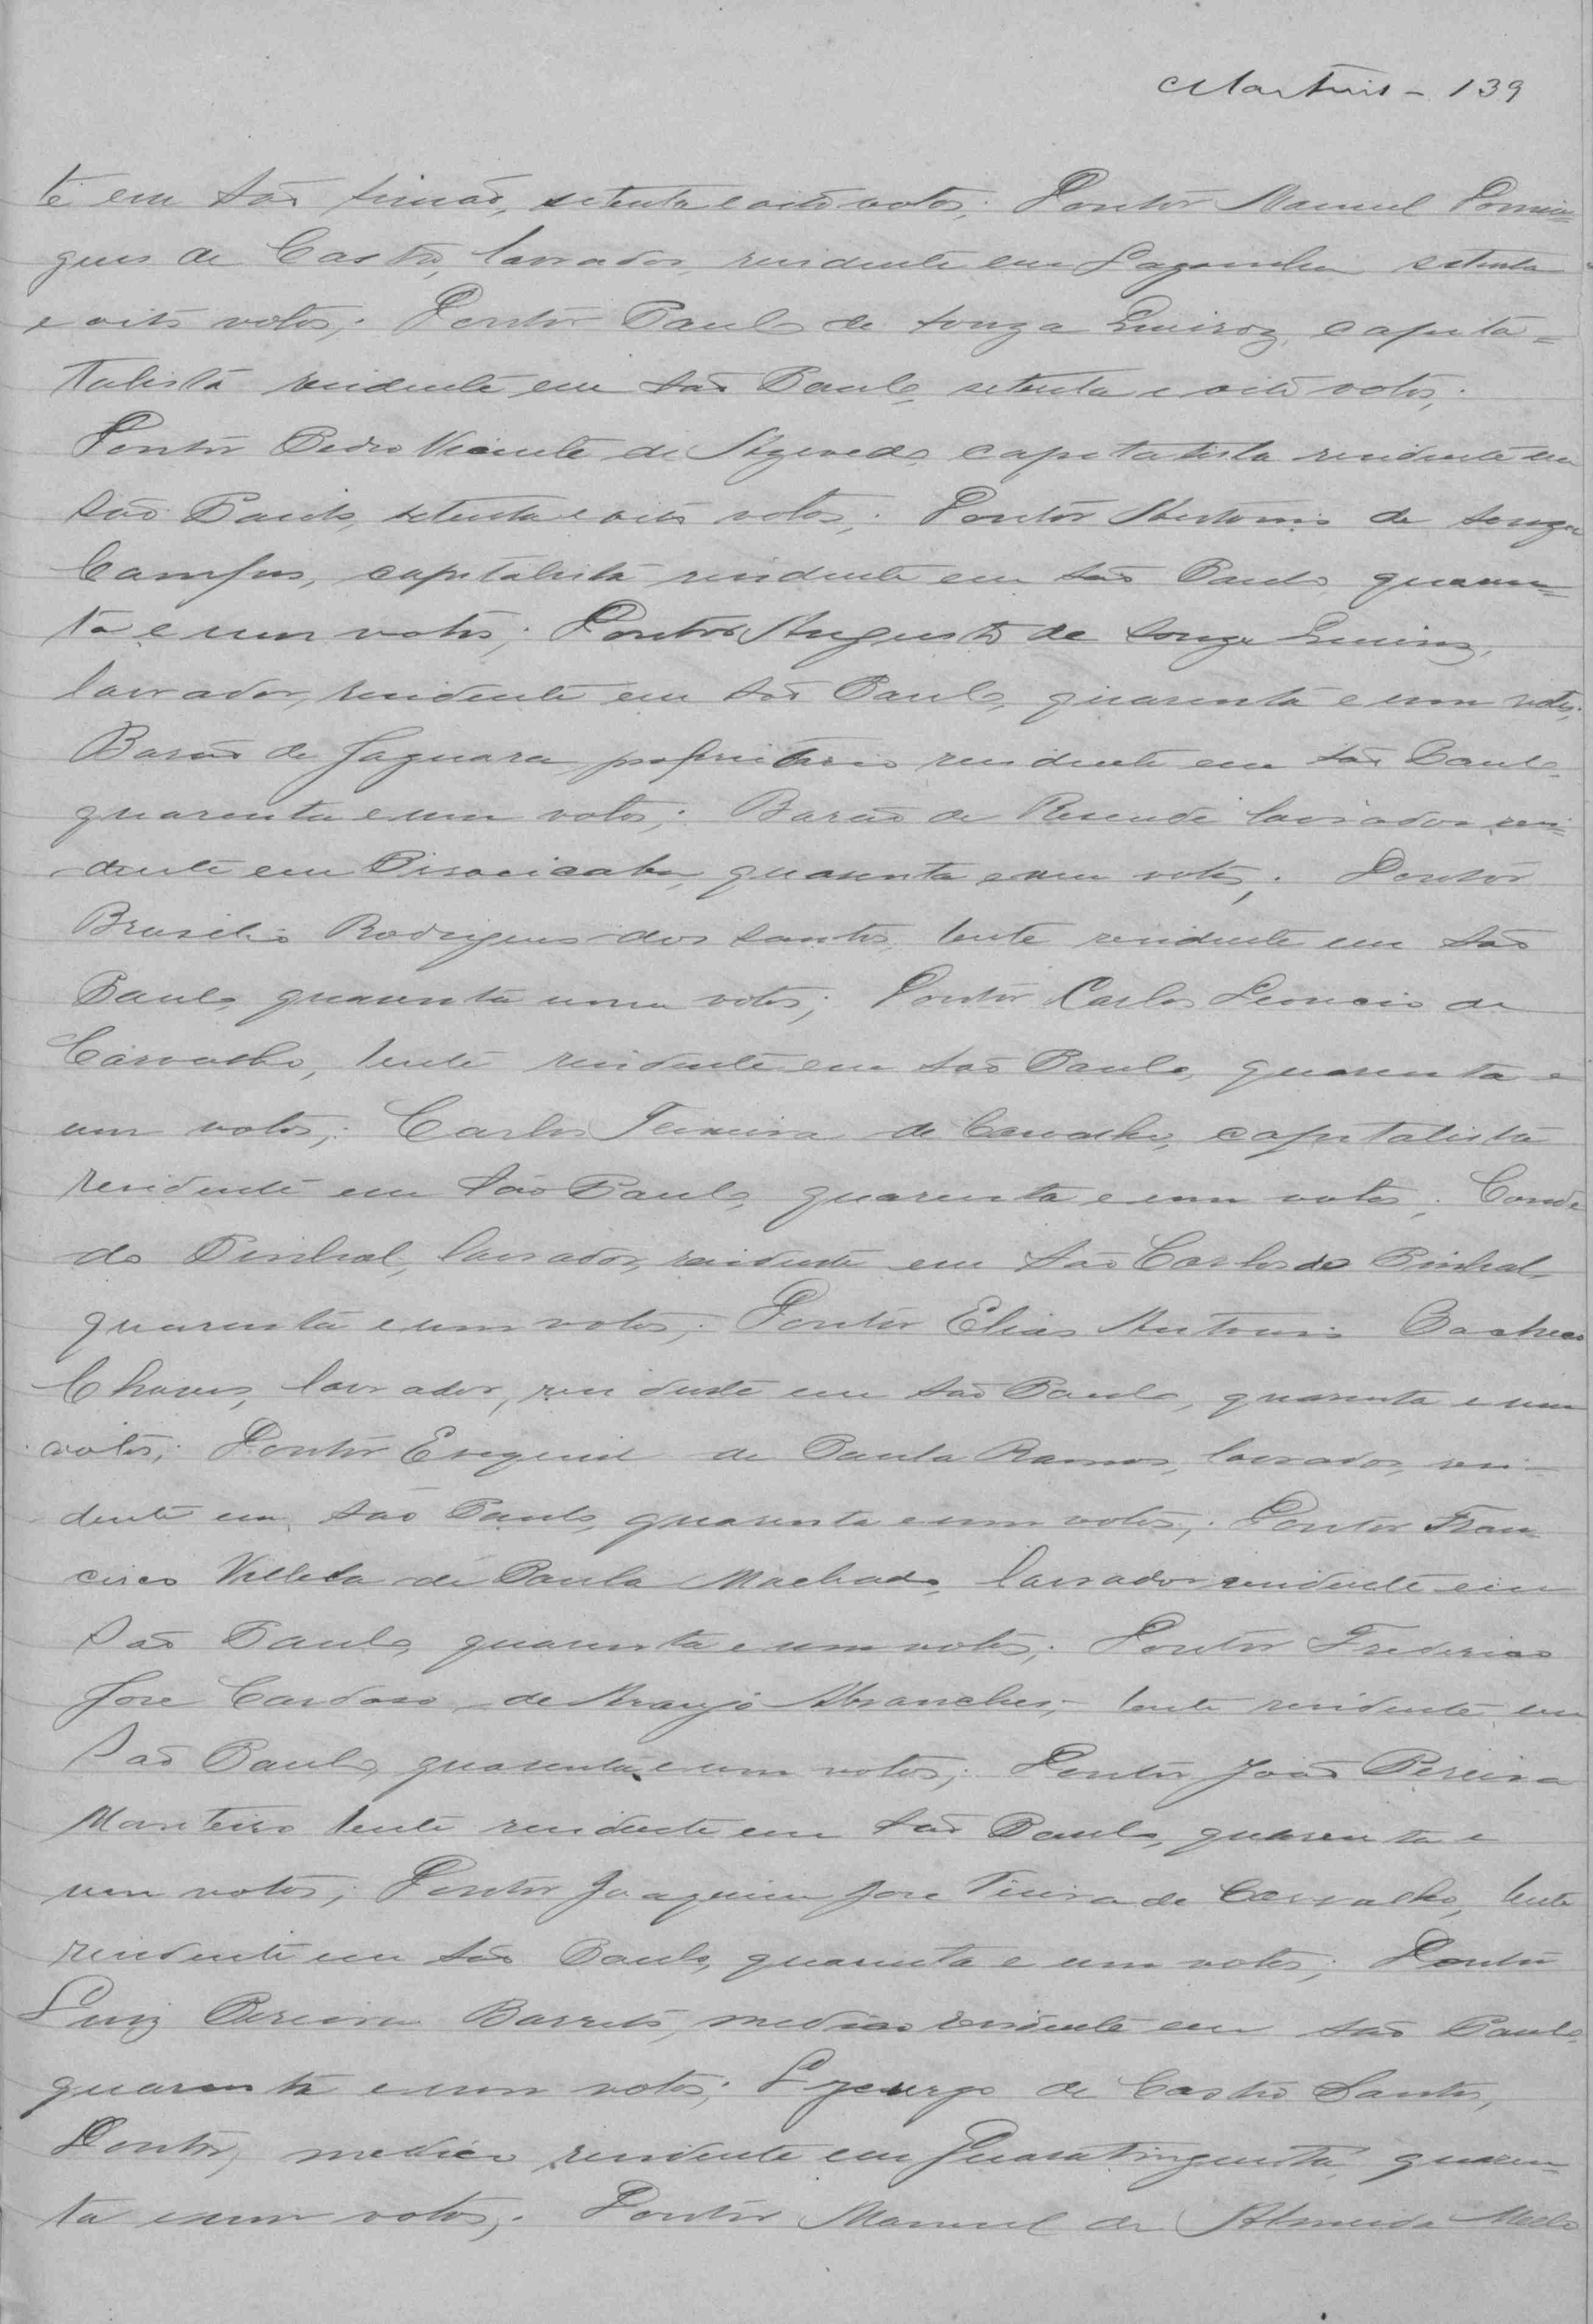 Martins - 139
te em São Simão, setenta e oito votos; Doutor Manuel Domin=
gues de Castro, lavrador, residente em Lagoinha setenta
e oito votos; Doutor Paulo de Souza Queiroz, capita=
talista residente em São Paulo, setenta e oito votos;
Doutor Pedro Vicente de Azevedo, capitalista residente em
São Paulo, setenta e oito votos; Doutor Antonio de Souza
Campos, capitalista residente em São Paulo quaren=
ta e um votos; Doutor Augusto de Souza Queiroz,
lavrador, residente em São Paulo, quarenta e um votos;
Barão de Jaguara, proprietario residente em São Paulo,
quarenta e um votos; Barão de Resende lavrador resi=
dente em Piracicaba, quarenta e um votos; Doutor
Brasilio Rodrigues dos Santos, lente residente em São
Paulo, quarenta um votos; Doutor Carlos Leoncio de
Carvalho, lente residente em São Paulo, quarenta e
um votos; Carlos Teixeira de Carvalho, capitalista
residente em São Paulo, quarenta e um votos; Conde
do Pinhal, lavrador, residente em São Carlos do Pinhal,
quarenta e um votos; Doutor Elias Antonio Pacheco
Chaves, lavrador, residente em São Paulo, quarenta e um
votos; Doutor Ezequiel de Paula Ramos, lavrador, resi-
dente em São Paulo, quarenta e um votos; Doutor Fran
cisco Villela de Paula Machado, lavrador residente em
São Paulo, quarenta e um votos; Doutor Frederico
José Cardoso de Araujo Abranches, lente residente em
São Paulo, quarenta e um votos; Doutor João Pereira
Monteiro lente residente em São Paulo, quarenta e
um votos; Doutor Joaquim José Vieira de Carvalho, lente
residente em São Paulo, quarenta e um votos; Doutor
Luiz Pereira Barreto, medico residente em São Paulo,
quarenta e um votos; Lycurgo de Castro Santos,
Doutor, medico residente em Guaratinguetá, quaren=
ta e um votos; Doutor Manuel de Almeida Mello